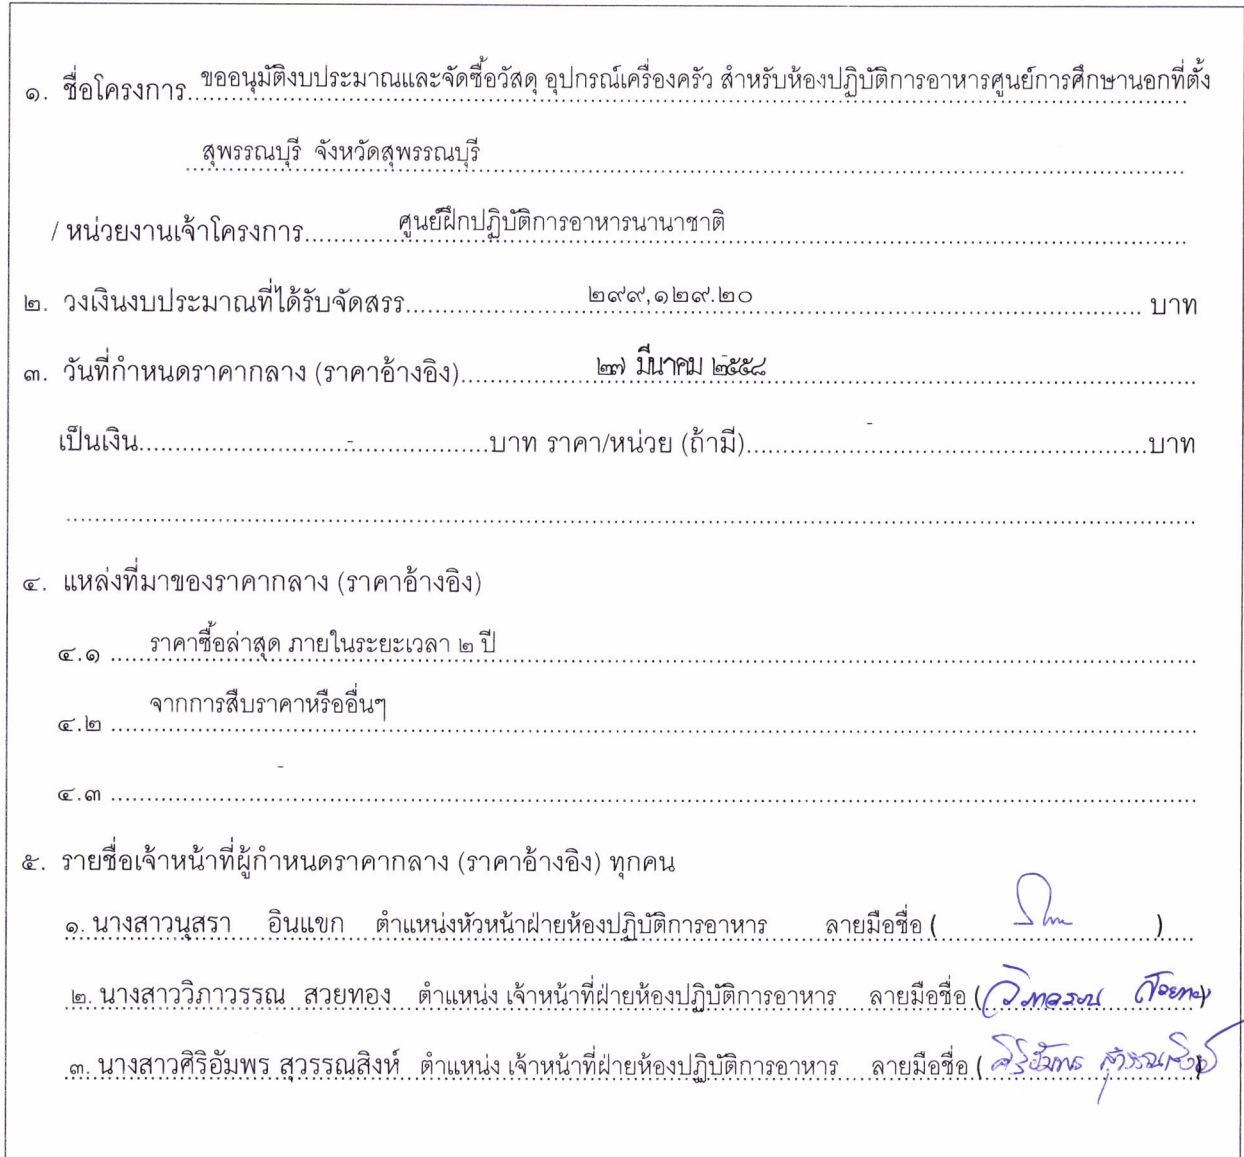 ๑. ชื่อโครงการ ขออนุมัติงบประมาณและจัดซื้อวัสดุ อุปกรณ์เครื่องครัว สำหรับห้องปฏิบัติการอาหารศูนย์การศึกษานอกที่ตั้ง
สุพรรณบุรี จังหวัดสุพรรณบุรี
/ หน่วยงานเจ้าโครงการ ศูนย์ฝึกปฏิบัติการอาหารนานาชาติ
๒. วงเงินงบประมาณที่ได้รับจัดสรร ๒๙๙,๑๒๙.๒๐ บาท
๓. วันที่กำหนดราคากลาง (ราคาอ้างอิง) ๒๗ มีนาคม ๒๕๕๘
เป็นเงิน - บาท ราคา/หน่วย (ถ้ามี) - บาท
๔. แหล่งที่มาของราคากลาง (ราคาอ้างอิง)
๔.๑ ราคาซื้อล่าสุด ภายในระยะเวลา ๒ ปี
๔.๒ จากการสืบราคาหรืออื่นๆ
๔.๓ -
๕. รายชื่อเจ้าหน้าที่ผู้กำหนดราคากลาง (ราคาอ้างอิง) ทุกคน
๑. นางสาวนุสรา อินแขก ตำแหน่งหัวหน้าฝ่ายห้องปฏิบัติการอาหาร ลายมือชื่อ ( )
๒. นางสาววิภาวรรณ สวยทอง ตำแหน่ง เจ้าหน้าที่ฝ่ายห้องปฏิบัติการอาหาร ลายมือชื่อ (วิภาวรรณ สวยทอง)
๓. นางสาวศิริอัมพร สุวรรณสิงห์ ตำแหน่ง เจ้าหน้าที่ฝ่ายห้องปฏิบัติการอาหาร ลายมือชื่อ (ศิริอัมพร สุวรรณสิงห์)